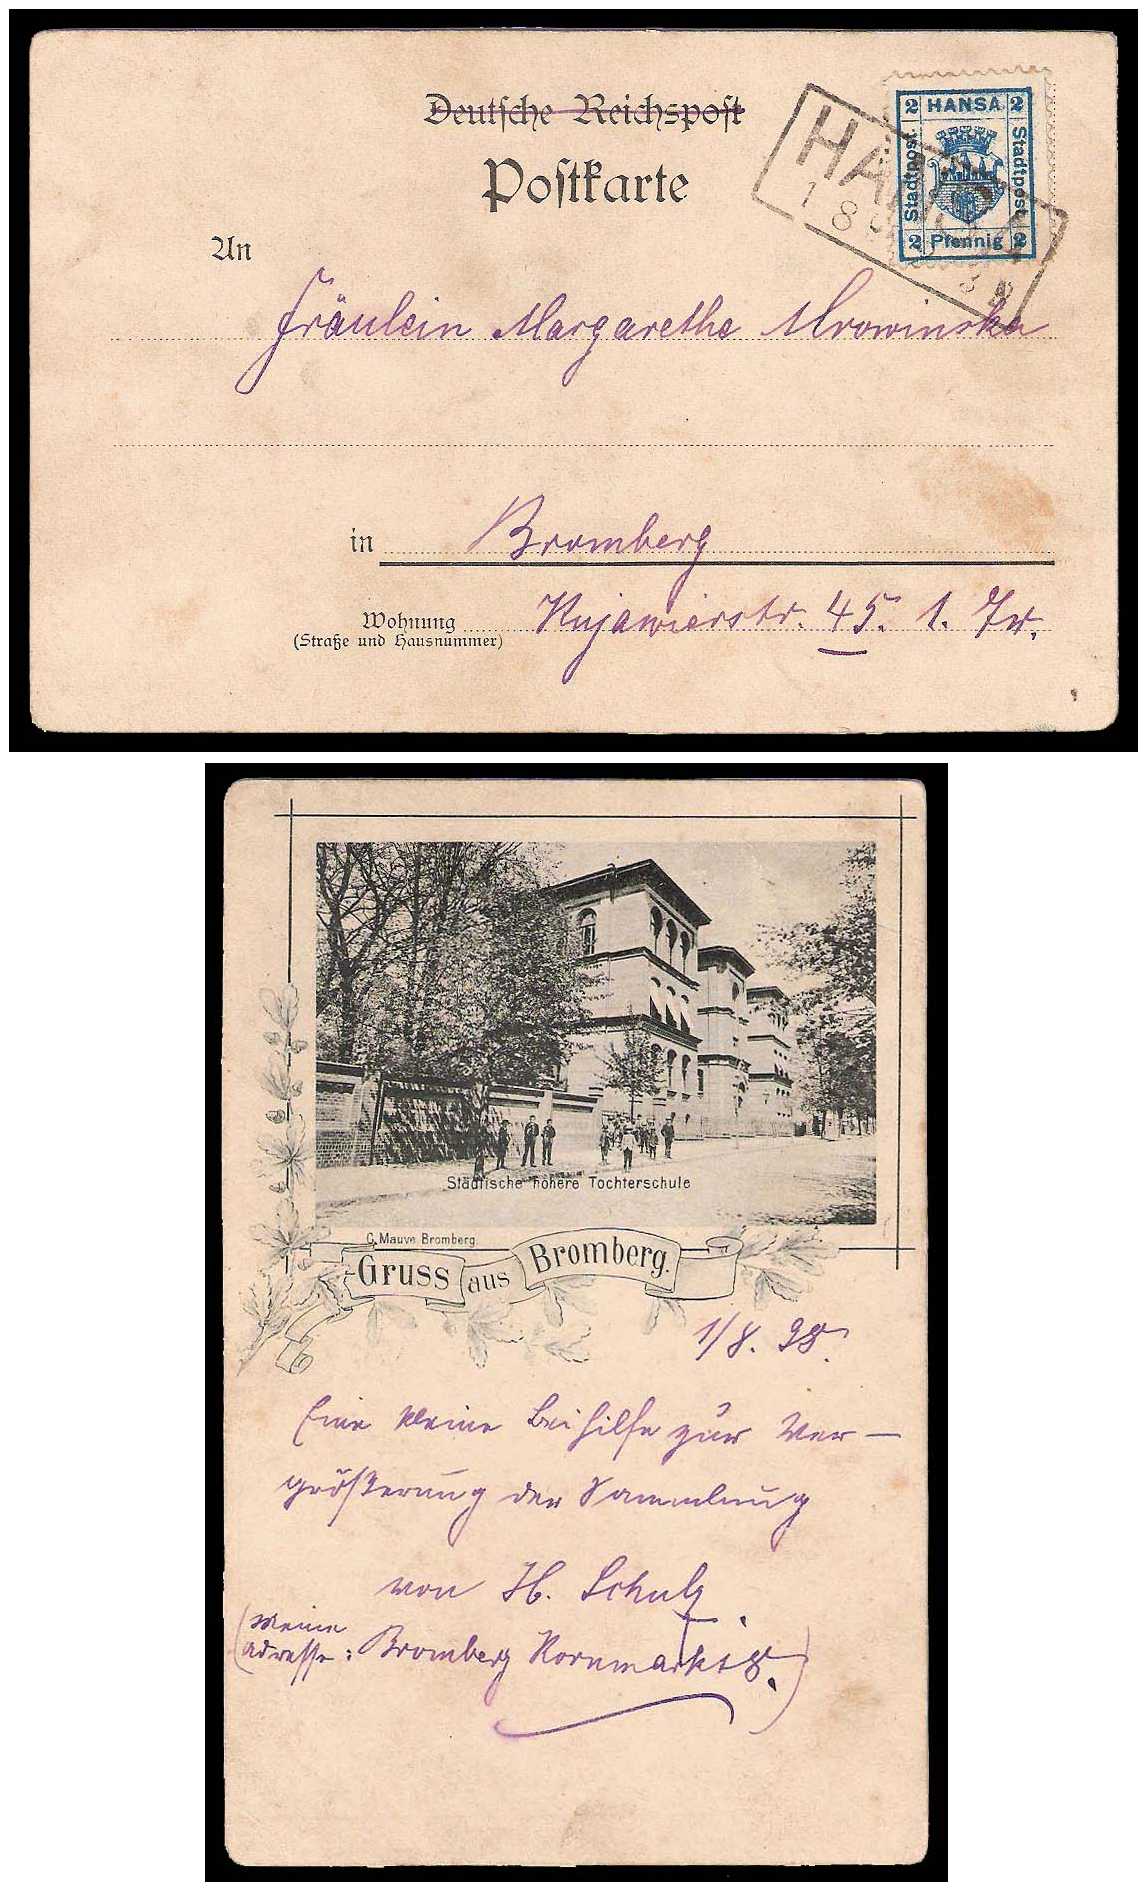 Deutsche Reichspost
Postkarte
2 HANSA 2
Stadtpost
Stadtpost
2 Pfennig 2
HANSA
1 8
An
Fräulein Margarethe Mrowinska
in Bromberg
Wohnung Kujawierstr. 45. 1. Tr.
(Straße und Hausnummer)
Städtische höhere Tochterschule
C. Mauve Bromberg.
Gruss aus Bromberg.
1/8. 98.
Eine kleine Beihilfe zur Ver-
größerung der Sammlung
von H. Schulz.
(Meine
Adresse: Bromberg Kornmarkt 8.)